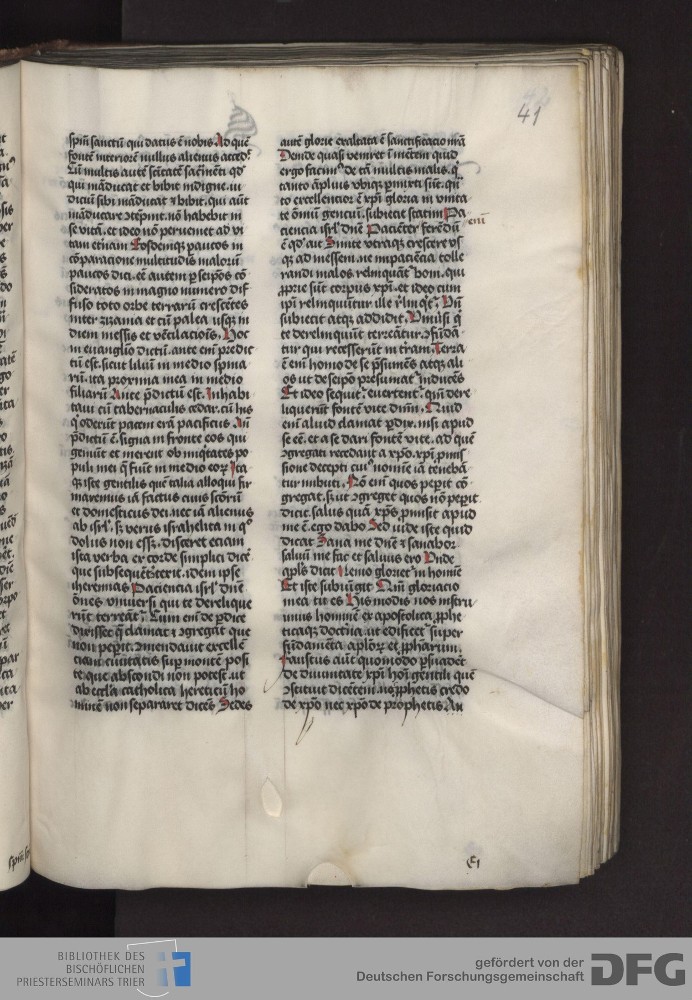 41
sp̄m sanctū qui datus ē nobis. Ad quē
fontē interiorē nullus alienus acced᷑
qui māducat et bibit indigne. iu
diciū sibi māducat ⁊ bibit. qui aūt
māducare ↄtēpnit. nō habebit in
se vitā. et ideo nō perueniet ad vi
tam et̄nam Eosdemqꝫ paucos in
cōparacione multitudis malorū
paucos dici. eē autem ꝑ seip̄os cō
sideratos in magno numero dif
fuso toto orbe terrarū crescētes
inter zizania et cū palea usqꝫ in
diem messis et vētilacionis. Hoc
in euanglio dictū. ante em̄ predic
tū est. sicut liliū in medio spina
rū. ita proxima mea in medio
filiarū Ante p̄dictū est. Inhabi
taui cū tabernaculis cedar. cū his
q̇ oderūt pacem erā pacificus
p̄dictū ē. signa in fronte eos qui
gemūt et merent ob iniq̇tates po
puli mei q̇ fiūt in medio eoꝝ Ita
qꝫ iste gentilis quē talia alloqui fir
maremus iā factus ciuis sc̄orū
et domesticus dei. nec iā alienus
ab isrl̓. sꝫ verus israhelita in q°
dolus non essꝫ. disceret eciam
ista verba ex corde simplici dice
que subsequēt̓ iterē. idem ip̄se
iheremias Paciencia isrl̓ dn̄e
ōnes vniuersi qui te derelique
rūt terreāt᷑. Cum em̄ de ꝑdice
dixisset q̄ clamat ⁊ ↄgregat que
non peꝑit. ↄmendauit excellē
ciam ciuitatis sup montē posi
te que abscondi non potest. ut
ab eccl̓ia catholica hereticū ho
minē non separaret dicēs Sedes
autē glorie exaltata ē sanctificacio n̄ra
Deinde quasi veniret i mētem quid
tanto āplius vbiqꝫ ꝑmixti sūt. q̄n
to excellencior ē xp̄i gloria in vnita
te ōniū genciū. subiecit statim Pa
ciencia isrl̓ dn̄e Pacient̄ ferēdū em̄
ē qd̓ ait Sinite vtraqꝫ crescere vs
qꝫ ad messem. ne impaciēcia tolle
randi malos relinquāt᷑ boni. qui
ꝓprie sūt corpus xp̄i. et ideo cum
subiecit atqꝫ addidit. Vniūsi q̇
te derelinquūt terreātur. ↄfūdā
tur qui recesserūt in tram. Terra
ē em̄ homo de se p̄sumēs atqꝫ ali
os ut de seipō presumāt᷑ inducēs
Et ideo sequit᷑ euertent᷑. qm̄ dere
liquerūt fontē vite dn̄m. Quid
em̄ aliud clamat ꝑdix. nisi apud
se eē. et a se dari fontē vite. ad quē
ↄgregati recedant a xp̄o. xp̄i ꝓmis
sione decepti cuiꝰ nomīe iā tenebā
tur imbuti. Nō em̄ quos peꝑit cō
gregat. sꝫ ut ↄgreget quos nō peꝑit
dicit. salus quā xp̄s ꝓmisit apud
me ē. ego dabo Sed uide iste quid
dicat Sana me dn̄e ⁊ sanabor
saluū me fac et saluus ero Vnde
apl̓s dicit Nemo gloriet᷑ in homīe
Et iste subiūgit Qm̄ gloriacio
mea tu es His modis nos instru
imus hominē ex apostolica ꝓphe
ticaqꝫ doctīna. ut edificet᷑ super
fūdamēta apl̓oꝝ et ꝓphaꝝum.
Faustus aūt quomodo p̄suadet
de diuinitate xp̄i hoī gentili quē
ↄstituit dicētem neꝗ ꝓphetis credo
de xp̄o nec xp̄o de prophetis. An
BIBLIOTHEK DES
BISCHÖFLICHEN
PRIESTERSEMINARS TRIER
gefördert von der
Deutschen Forschungsgemeinschaft
DFG